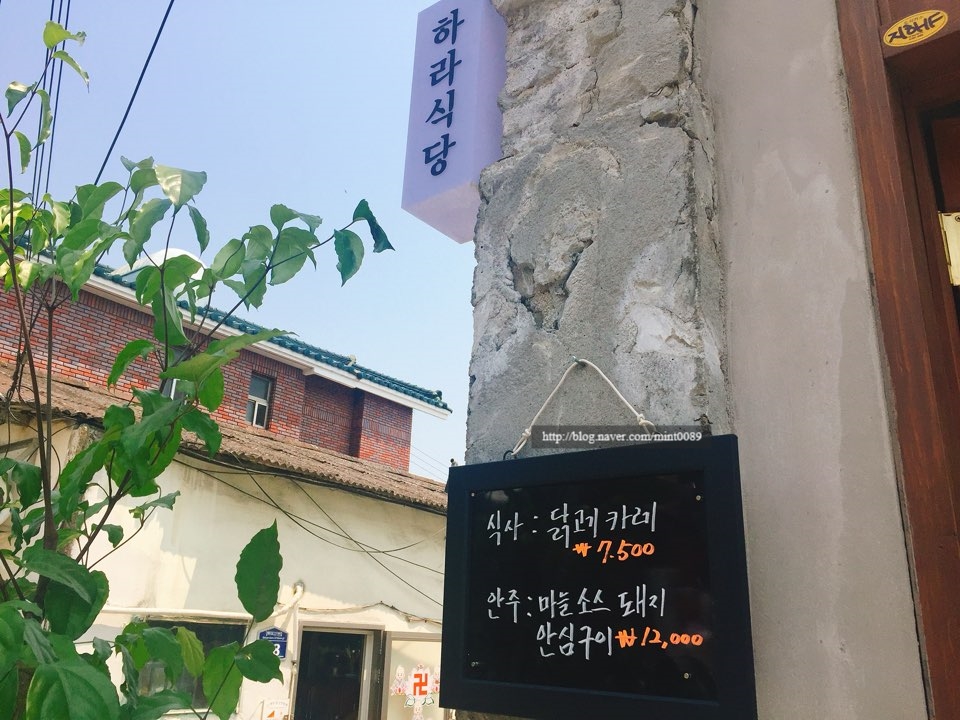 하라식당
지하나
http://blog.naver.com/mint0089
식사 : 닭고기 카레
₩ 7.500
안주 : 마늘소스 돼지
안심구이 ₩ 12,000
8
卍